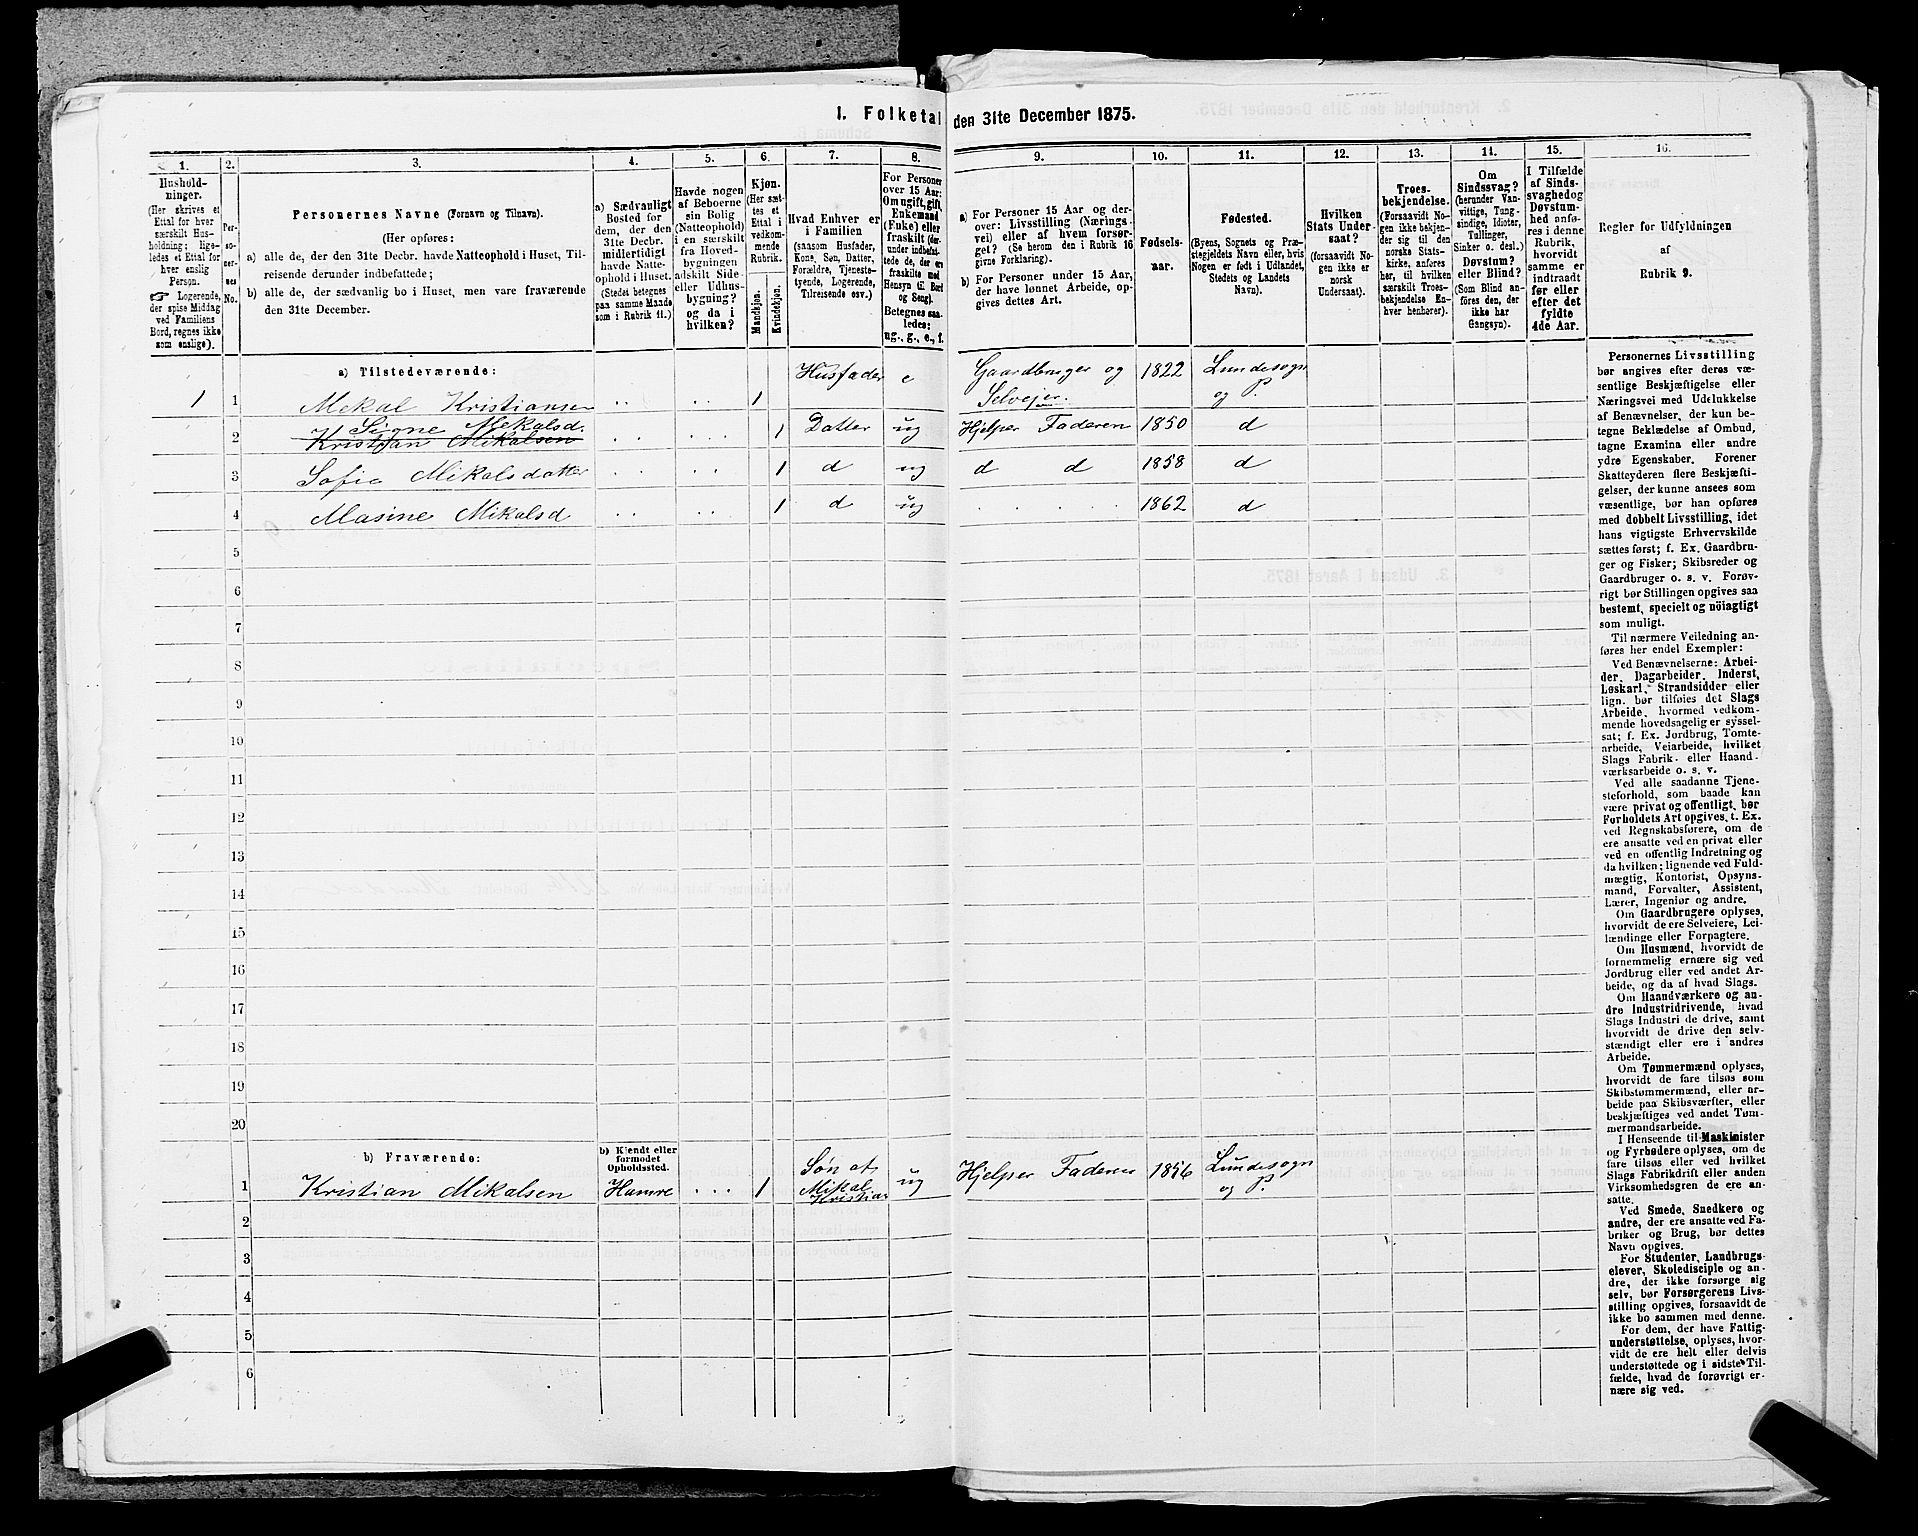 I. Folketal den 31te December 1875.
1. 2. 3. 4. 5. 6. 7. 8. 9. 10. 11. 12. 13. 14. 15. 16.
Hushold-
ninger.
(Her skrives et
Ettal for hver
særskilt Hus-
holdning; lige-
ledes et Ettal for
hver enslig
Person.
☞ Logerende,
der spise Middag
ved Familiens
Bord, regnes ikke
som enslige).
Per-
so-
ner-
nes
No.
Personernes Navne (Fornavn og Tilnavn).
(Her opføres:
a) alle de, der den 31te Decbr. havde Natteophold i Huset, Til-
reisende derunder indbefattede;
b) alle de, der sædvanlig bo i Huset, men vare fraværende
den 31te December.
a) Sædvanligt
Bosted for
dem, der den
31te Decbr.
midlertidigt
havde Natte-
ophold i Huset.
(Stedet betegnes
paa samme Maade
som i Rubrik 11.)
Havde nogen
af Beboerne
sin Bolig
(Natteophold)
i en særskilt
fra Hoved-
bygningen
adskilt Side-
eller Udhus-
bygning?
og da i
hvilken?
Kjøn.
(Her sæt-
tes et
Ettal i
vedkom-
mende
Rubrik.
Mandkjøn.
Kvindekjøn.
Hvad Enhver er
i Familien
(saasom Husfader,
Kone, Søn, Datter,
Forældre, Tjeneste-
tyende, Logerende,
Tilreisende osv.)
For Personer
over 15 Aar:
Om ugift, gift,
Enkemand
(Enke) eller
fraskilt (der-
under indbefat-
tede de, der ere
fraskilte med
Hensyn til Bord
og Seng).
Betegnes saa-
ledes:
ug., g., e., f.
a) For Personer 15 Aar og der-
over: Livsstilling (Nærings-
vei) eller af hvem forsør-
get? (Se herom den i Rubrik 16
givne Forklaring).
b) For Personer under 15 Aar,
der have lønnet Arbeide, op-
gives dettes Art.
Fødsels-
aar.
Fødested.
(Byens, Sognets og Præ-
stegjeldets Navn eller, hvis
Nogen er født i Udlandet,
Stedets og Landets
Navn).
Hvilken
Stats Under-
saat?
(forsaavidt No-
gen ikke er
norsk
Undersaat).
Troes-
bekjendelse.
(Forsaavidt No-
gen ikke bekjen-
der sig til den
norske Stats-
kirke, anføres
her, til hvilken
særskilt Troes-
bekjendelse En-
hver henhører).
Om
Sindssvag?
(herunder Van-
vittige, Tung-
sindige, Idioter,
Tullinger,
Sinker o. desl.)
Døvstum?
eller Blind?
(Som Blind an-
føres den, der
ikke har
Gangsyn).
I Tilfælde
af Sinds-
svaghed og
Døvstum-
hed anfø-
res i denne
Rubrik,
hvorvidt
samme er
indtraadt
før eller
efter det
fyldte
4de Aar.
Regler for Udfyldningen
af
Rubrik 9.
a) Tilstedeværende:
1 1 Mekal Kristiansen .. .. 1 Husfader e Gaardbruger og Selvejer. 1822 Lundesogn og P.
Signe Mekalsd.
2 Kristian Mikalsen .. .. 1 Datter ug Hjelper Faderen 1850 d
3 Sofie Mikalsdatter .. .. 1 d ug d d 1858 d
4 Masine Mikalsd .. .. 1 d ug .... 1862 d
5
6
7
8
9
10
11
12
13
14
15
16
17
18
19
20
b) Fraværende:
b) Kjendt eller
formodet
Opholdssted.
1 Kristian Mikalsen Hamre ... 1 Søn at Mikal Kristian ug Hjelper Faderen 1856 Lundesogn og P.
2
3
4
5
6
Personernes Livsstilling
bør angives efter deres væ-
sentlige Beskjæftigelse eller
Næringsvei med Udelukkelse
af Benævnelser, der kun be-
tegne Beklædelse af Ombud,
tagne Examina eller andre
ydre Egenskaber. Forener
Skatteyderen flere Beskjæfti-
gelser, der kunne ansees som
væsentlige, bør han opføres
med dobbelt Livsstilling, idet
hans vigtigste Erhvervskilde
sættes først; f. Ex. Gaardbru-
ger og Fisker; Skibsreder og
Gaardbruger o. s. v. Forøv-
rigt bør Stillingen opgives saa
bestemt, specielt og nöiagtigt
som muligt.
Til nærmere Veiledning an-
føres her endel Exempler:
Ved Benævnelserne: Arbei-
der, Dagarbeider, Inderst,
Løskarl, Strandsidder eller
lign. bør tilføies det Slags
Arbeide, hvormed vedkom-
mende hovedsagelig er syssel-
sat; f. Ex. Jordbrug, Tomte-
arbeide, Veiarbeide, hvilket
Slags Fabrik- eller Haand-
værksarbeide o. s. v.
Ved alle saadanne Tjene-
steforhold, som baade kan
være privat og offentligt, bør
Forholdets Art opgives, t. Ex.
ved Regnskabsførere, om de
ere ansatte ved en privat eller
ved en offentlig Indretning og
da hvilken; lignende ved Fuld-
mægtig, Kontorist, Opsyns-
mand, Forvalter, Assistent,
Lærer, Ingeniør og andre.
Om Gaardbrugere oplyses,
hvorvidt de ere Selveiere, Lei-
lændinge eller Forpagtere.
Om Husmænd, hvorvidt de
fornemmelig ernære sig ved
Jordbrug eller ved andet Ar-
beide, og da af hvad Slags.
Om Haandværkere og an-
dre Industridrivende, hvad
Slags Industri de drive, samt
hvorvidt de drive den selv-
stændigt eller ere i andres
Arbeide.
Om Tømmermænd oplyses,
hvorvidt de fare tilsøs som
Skibstømmermænd, eller ar-
beide paa Skibsværfter, eller
beskjæftiges ved andet Tøm-
mermandsarbeide.
I Henseende til Maskinister
og Fyrbødere oplyses, om de
fare tilsøs eller ved hvilket
Slags Fabrikdrift eller anden
Virksomhedsgren de ere an-
satte.
Ved Smede, Snedkere og
andre, der ere ansatte ved Fa-
briker og Brug, bør dettes
Navn opgives.
For Studenter, Landbrugs-
elever, Skoledisciple og an-
dre, der ikke forsørge sig
selv, bør Forsørgerens Livs-
stilling opgives, forsaavidt de
ikke bo sammen med denne.
For dem, der have Fattig-
understøttelse, oplyses, hvor-
vidt de ere helt eller delvis
understøttede og i sidste Til-
fælde, hvad de forøvrigt er-
nære sig ved.